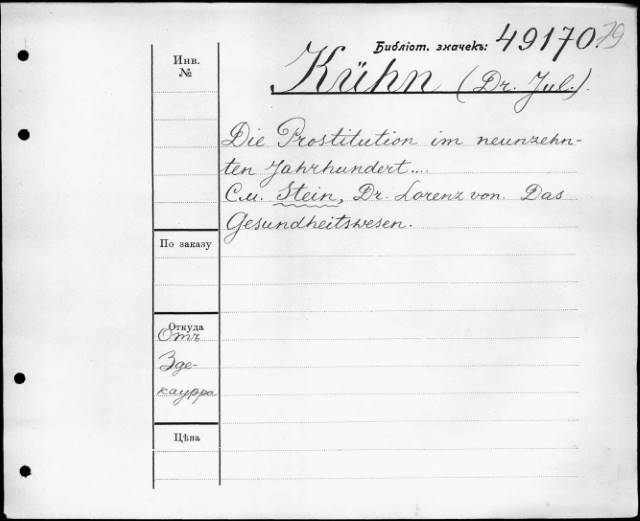 Библіот. значекъ: 49170 79
Инв.
№
Kühn (Dr. Jul.).
Die Prostitution im neunzehn-
ten Jahrhundert....
См. Stein, Dr. Lorenz von. Das
Gesundheitswesen.
По заказу
Откуда
Отъ
Эде-
каурра
Цѣна